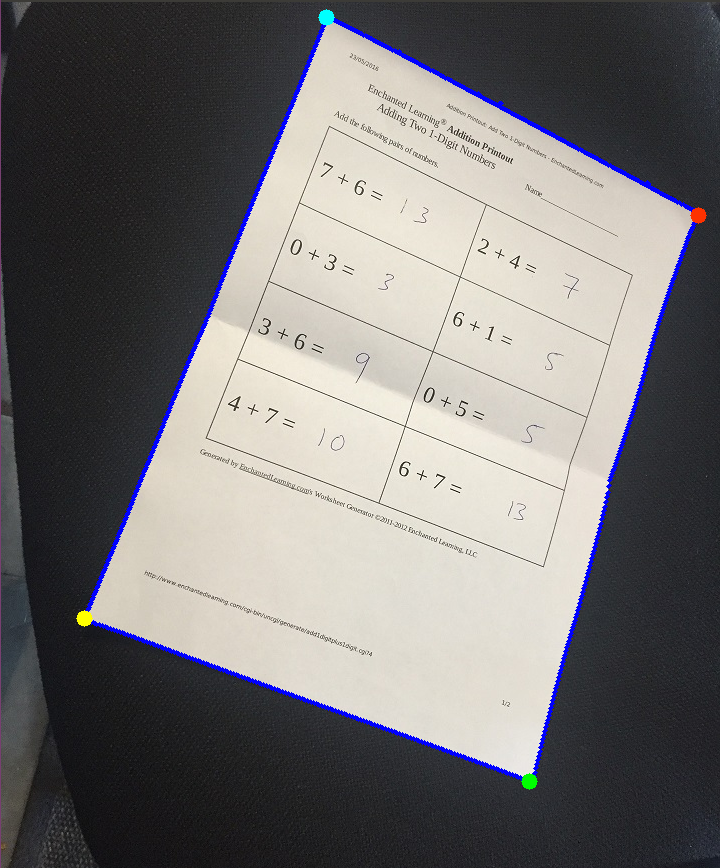 23/05/2018
Addition Printout: Add Two 1-Digit Numbers - EnchantedLearning.com
Enchanted Learning® Addition Printout
Adding Two 1-Digit Numbers
Name
Add the following pairs of numbers.
7 + 6 = 13
2 + 4 = 7
0 + 3 = 3
6 + 1 = 5
3 + 6 = 9
0 + 5 = 5
4 + 7 = 10
6 + 7 = 13
Generated by EnchantedLearning.com's Worksheet Generator ©2011-2012 Enchanted Learning, LLC
http://www.enchantedlearning.com/cgi-bin/uncgi/generate/add1digitplus1digit.cgi?4
1/2